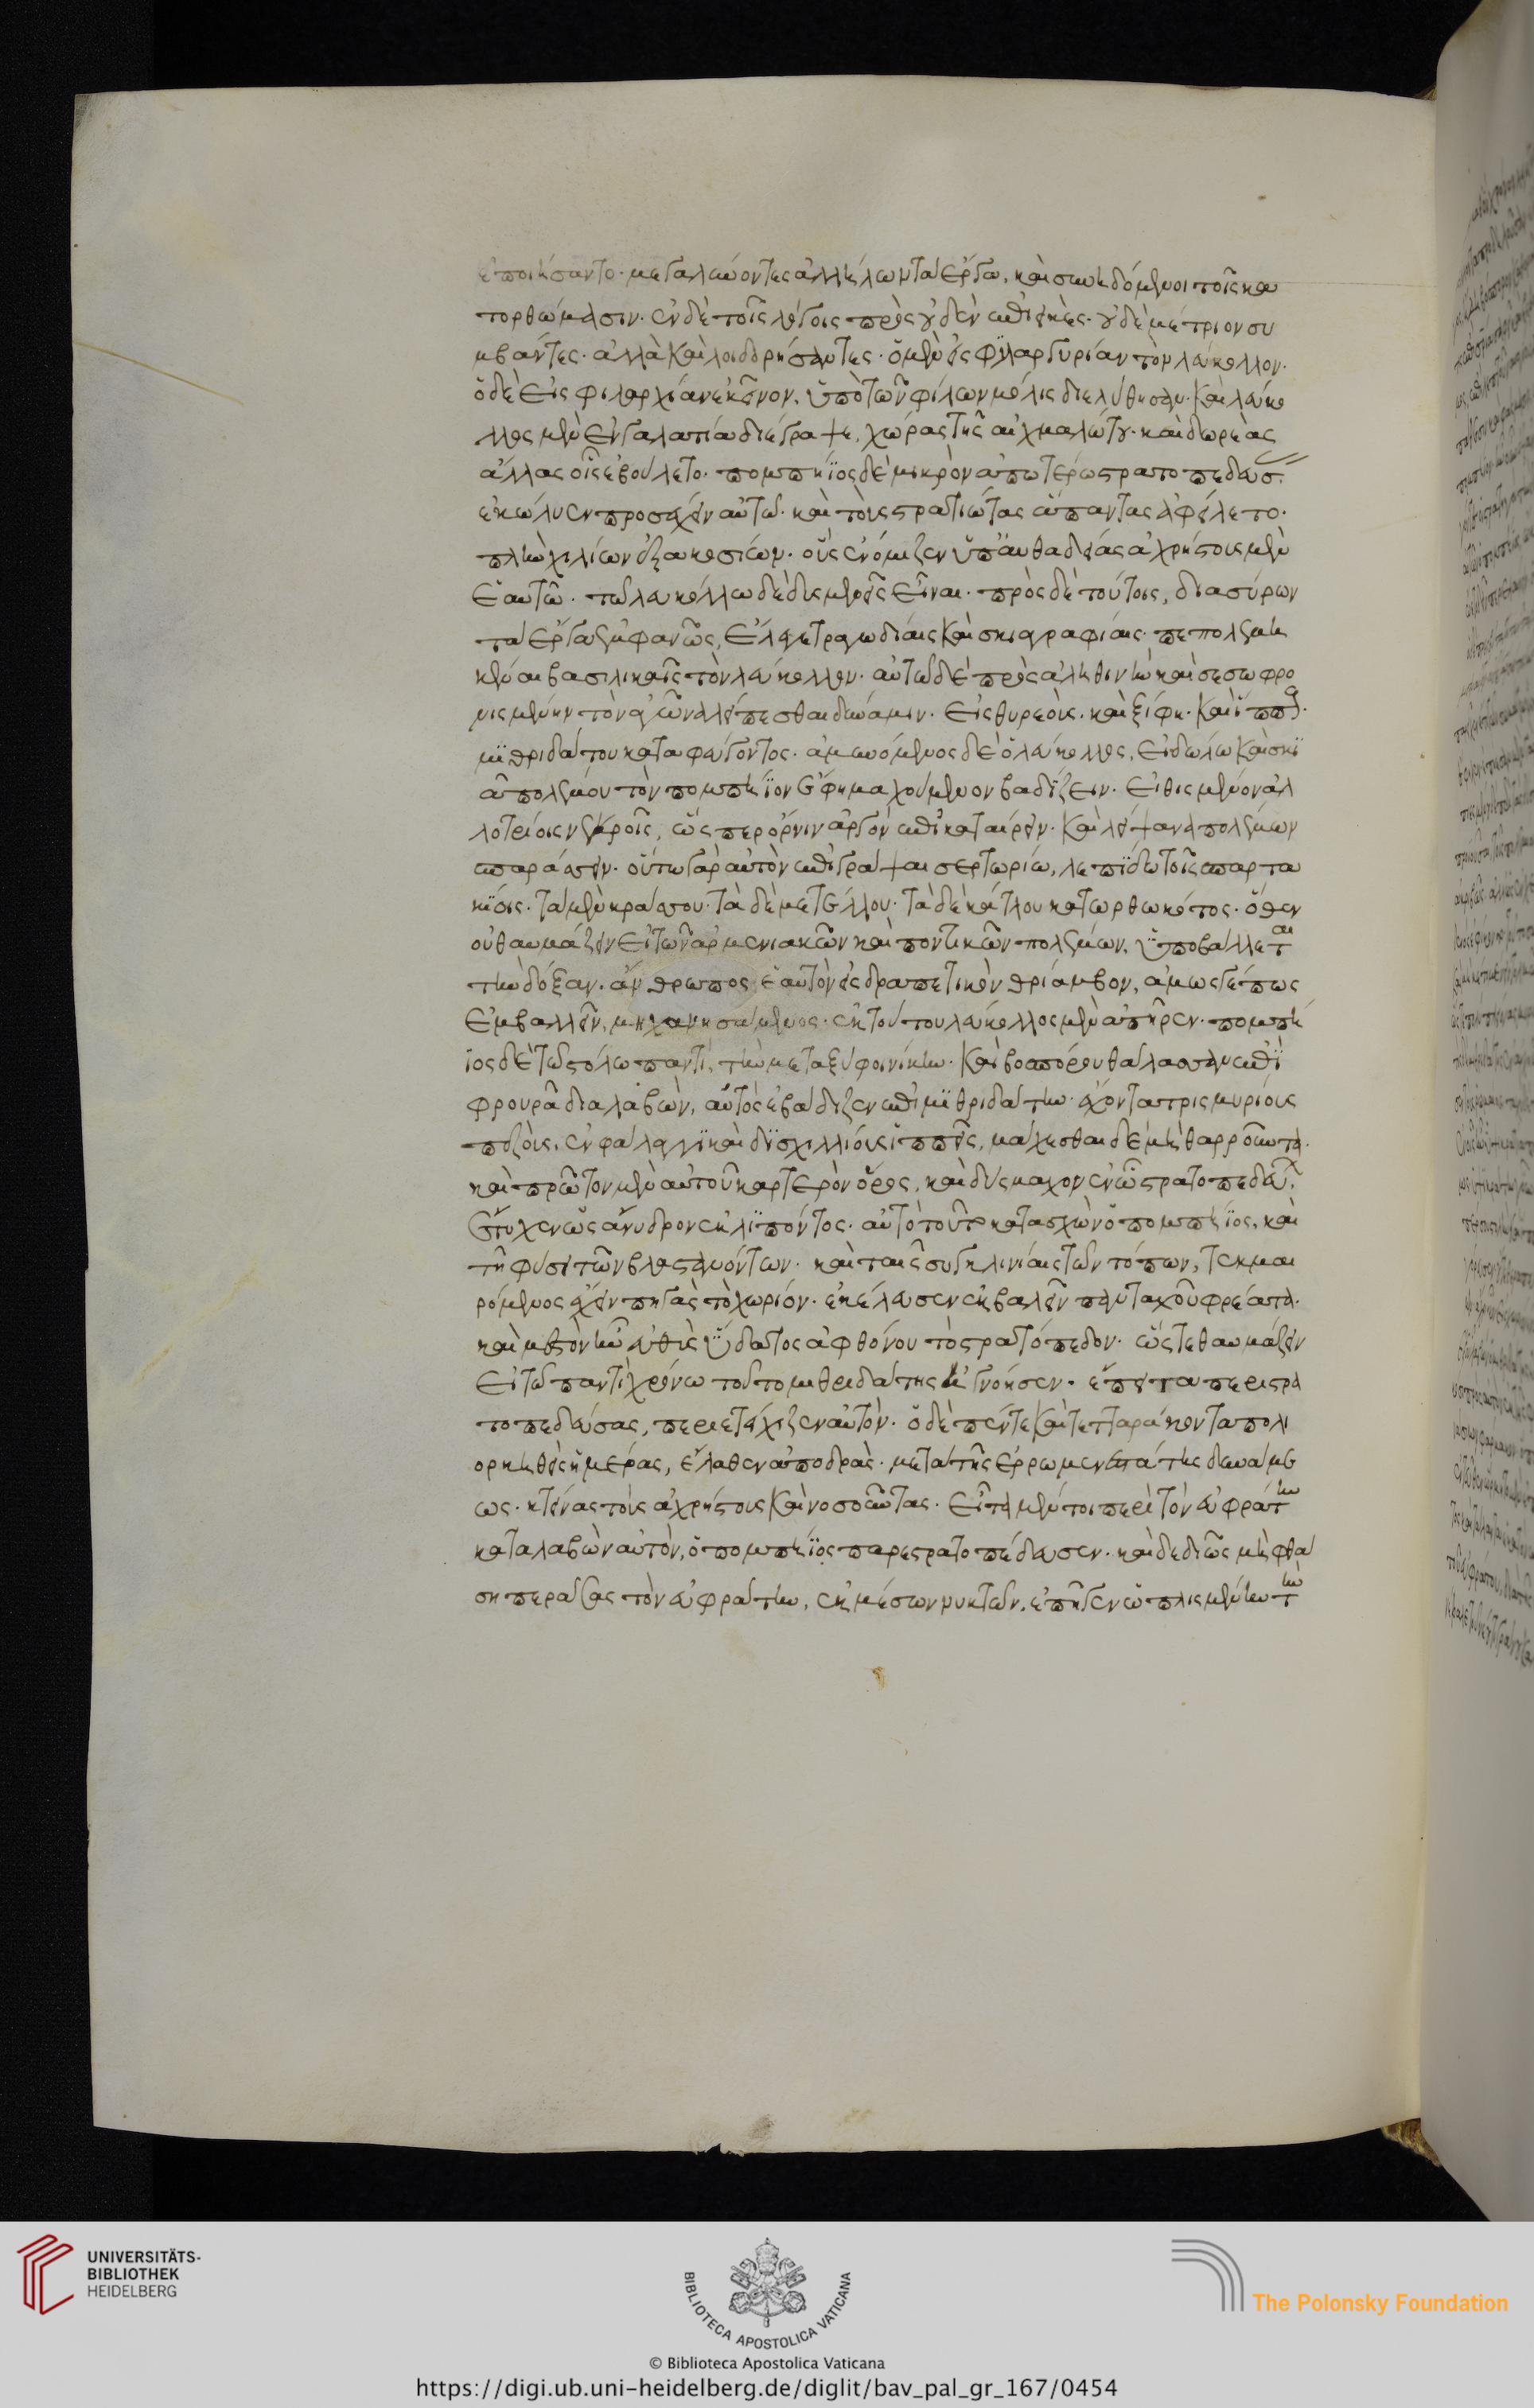 ἐποιήσαντο· μεγαλύνοντες ἀλλήλων τὰ ἔργα, καὶ συνηδόμενοι τοῖς κα
τορθώμασιν· ἐν δὲ τοῖς λόγοις πρὸς οὐδὲν ἐπιεικὲς· οὐδὲ μέτριον συ
μβάντες· ἀλλὰ καὶ λοιδορήσαντες· ὁ μὲν εἰς φιλαργυρίαν τὸν λεύκολλον·
ὁ δὲ εἰς φιλαρχίαν ἐκεῖνον, ὑπὸ τῶν φίλων μόλις διελύθησαν· καὶ λεύκο
λλος μὲν ἐν γαλατία διέγραψε, χώρας τῆς αἰχμαλώτου· καὶ δωρεὰς
ἄλλας οἷς ἐβούλετο· πομπήϊος δὲ μικρὸν ἀπωτέρω στρατοπεδεύσ.
ἐκώλυεν προσέχειν αὐτῶ· καὶ τοὺς στρατιώτας ἅπαντας ἀφείλετο·
πλὴν χιλίων ἑξακοσίων· οὓς ἐνόμιζεν ὑπ' αὐθαδείας ἀχρήστους μὲν
ἑαυτῶ· τῶ λευκόλλω δὲ δυσμενεῖς εἶναι· πρὸς δὲ τούτοις, διασύρων
τὰ ἔργα ἐμφανῶς, ἔλεγε τραγωδίαις καὶ σκιαγραφίαις πεπολεμη
κέναι βασιλικαῖς τὸν λεύκολλον· αὐτῶ δὲ πρὸς ἀληθινὴν καὶ σεσωφρο
νισμένην τὸν ἀγῶνα λείπεσθαι δύναμιν· εἰς θυρεοὺς, καὶ ξίφη· καὶ ἵππους·
μϊθριδάτου καταφυγόντος· ἀμυνόμενος δὲ ὁ λεύκολλος, εἰδώλω καὶ σκϊ
ᾶ πολέμου τὸν πομπήϊον ἔφη μαχούμενον βαδίζειν· εἰθισμένον ἀλ
λοτρίοις νεκροῖς, ὥσπερ ὄρνιν ἀργὸν ἐπικαταίρειν· καὶ λείψανα πολέμων
σπαράσσειν· οὕτω γὰρ αὐτὸν ἐπιγράψαι σερτωρίω, λεπϊδω τοῖς σπαρτα
κίοις· τὰ μὲν κράσσου· τὰ δὲ μετέλλου· τὰ δὲ κάτλου κατωρθωκότος· ὅθεν
οὐ θαυμάζειν εἰ τῶν ἀρμενιακῶν καὶ ποντικῶν πολέμων, ὑποβάλλεται
τὴν δόξαν. ἄνθρωπος ἑαυτὸν εἰς δραπετικὸν θρίαμβον, ἀμωσγέπως
ἐμβαλλεῖν, μηχανησάμενος· ἐκ τούτου λεύκολλος μὲν ἀπῆρεν· πομπή
ϊος δὲ τῶ στόλω παντὶ, τὴν μεταξὺ φοινίκην· καὶ βοσπόρου θάλασσαν ἐπὶ
φρουρᾶ διαλαβὼν, αὐτὸς ἐβάδιζεν ἐπὶ μϊθριδάτην· ἔχοντα τρισμυρίους
πεζοὺς, ἐν φάλαγγϊ καὶ δϊσχιλλίους ἱππεῖς, μάχεσθαι δὲ μὴ θαρροῦντα·
καὶ πρῶτον μὲν αὐτοῦ καρτερὸν ὄρος, καὶ δύσμαχον ἐν ὧ στρατοπεδεύ.
ἔτυχεν ὡς ἄνυδρον ἐκλϊπόντος· αὐτὸ τοῦτο κατασχὼν ὁ πομπήϊος, καὶ
τῆ φύσει τῶν βλαστανόντων· καὶ ταῖς συγκλινίαις τῶν τόπων, τεκμαι
ρόμενος ἔχειν πηγὰς τὸ χωρίον· ἐκέλευσεν ἐκβαλεῖν πανταχοῦ φρέατα·
καὶ μεστὸν ἦν εὐθὺς ὕδατος ἀφθόνου τὸ στρατόπεδον· ὥστε θαυμάζειν
εἰ τῶ παντὶ χρόνω τοῦτο μιθριδάτης ἠγνόησεν· ἔπειτα περιστρα
τοπεδεύσας, περιετείχιζεν αὐτόν· ὁ δὲ πέντε καὶ τετταράκοντα πολι
ορκηθεὶς ἡμέρας, ἔλαθεν ἀποδρὰς· μετὰ τῆς ἐρρωμενεστάτης δυνάμε
ως· κτείνας τοὺς ἀχρήστους καὶ νοσοῦντας· εἶτα μέντοι περὶ τὸν εὐφράτην
καταλαβὼν αὐτὸν, ὁ πομπήϊος παρεστρατοπέδευσεν· καὶ δεδιὼς μὴ φθά
ση περάσας τὸν εὐφράτην, ἐκ μέσων νυκτῶν, ἐπῆγεν ὡπλισμένην τὴν
UNIVERSITÄTS-
BIBLIOTHEK
HEIDELBERG
BIBLIOTECA APOSTOLICA VATICANA
© Biblioteca Apostolica Vaticana
The Polonsky Foundation
https://digi.ub.uni-heidelberg.de/diglit/bav_pal_gr_167/0454